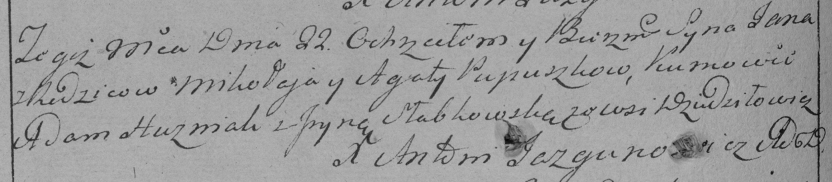 Tegoż Mca Dnia 22. Ochrzciłem y Bierzm Syna Jana
z Rodzicow Mikołaja y Agaty Papuszkow, Kumowie
Adam Huzniak z Jryną Słabkowską zewsi Dziedziłowicz
X Antoni Jazgunowicz